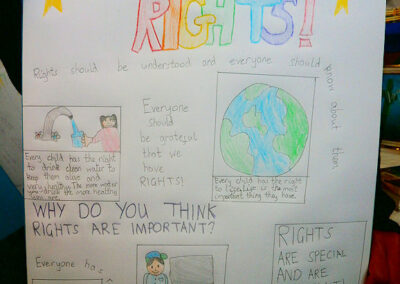 RIGHTS!
Rights should be understood and everyone should know about them.
Everyone
should
be grateful
that we
have
RIGHTS!
Every child has the right
to drink clean water to
keep them alive and
very healthy. The more water
you drink the more healthy
you are.
Every child has the right
to life. Life is the most
important thing they have.
WHY DO YOU THINK
RIGHTS ARE IMPORTANT?
Everyone has
RIGHTS
ARE SPECIAL
AND ARE